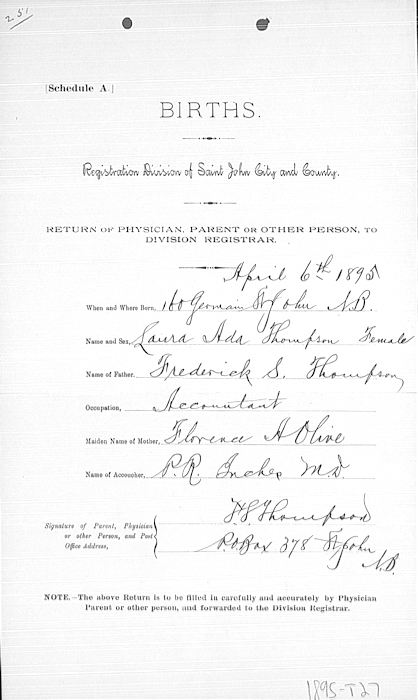 251
[Schedule A.]
BIRTHS.
Registration Division of Saint John City and County.
RETURN OF PHYSICIAN, PARENT OR OTHER PERSON, TO
DIVISION REGISTRAR.
April 6th 1895
When and Where Born, 160 Germain St John N.B.
Name and Sex, Laura Ada Thompson Female
Name of Father, Frederick S. Thompson
Occupation, Accountant
Maiden Name of Mother, Florence A Olive
Name of Accoucher, P.R. Inches M.D.
Signature of Parent, Physician
or other Person, and Post
Office Address,
F S Thompson
P.O. Box 378 St John
N.B.
NOTE.—The above Return is to be filled in carefully and accurately by Physician
Parent or other person, and forwarded to the Division Registrar.
1895-T27